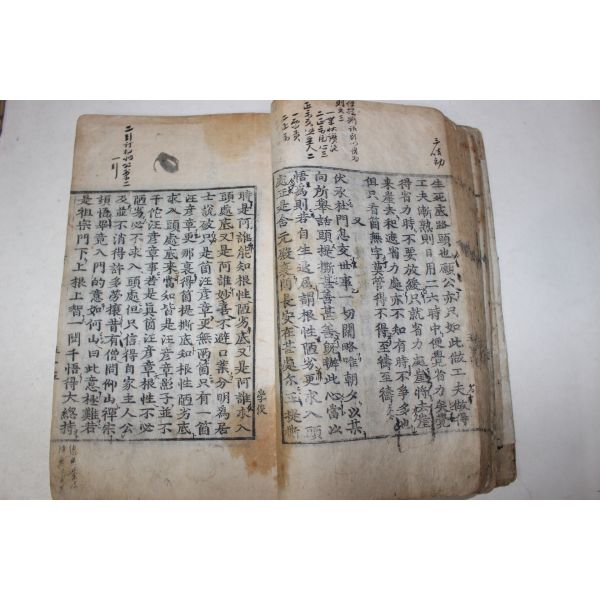 生死底路頭也願公亦只如此做工夫做得
工夫漸熟則日用二六時中便覺省力矣覺
得省力時不要放緩只就省力處崖將去崖
來崖去和遮省力處亦不知有時不爭多也
但只看箇無字莫管得不得至禱至禱
又
伏承杜門息交世事一切闊略唯朝夕以某
向所舉話頭提撕甚善甚善旣辦此心當以
悟爲則若自生退屈謂根性陋劣更求入頭
處正是含元殿裏問長安在甚處尒正提撕
時是阿誰能知根性陋劣底又是阿誰求入
頭處底又是阿誰妙喜不避口業分明爲居
士說破只是箇汪彦章更無兩箇只有一箇
汪彦章更那裏得箇提撕底知根性陋劣底
求入頭處底來當知皆是汪彦章影子並不
干佗汪彦章事若是眞箇汪彦章根性必不
陋劣必不求入頭處但只信得自家主人公
及並不消得許多勞攘昔有僧問仰山禪宗
頓悟畢竟入門的意如何山曰此意極難若
是祖宗門下上根上智一聞千悟得大緫持